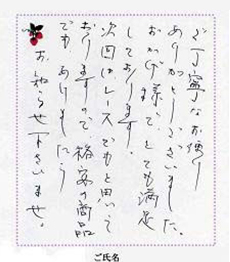 ご丁寧なお便り
ありがとうございました。
おかげ様で、とても満足
しております。
次回はレースでもと思いて
おりますので、格安の商品
でも ありましたら
お知らせ下さいませ。
ご氏名